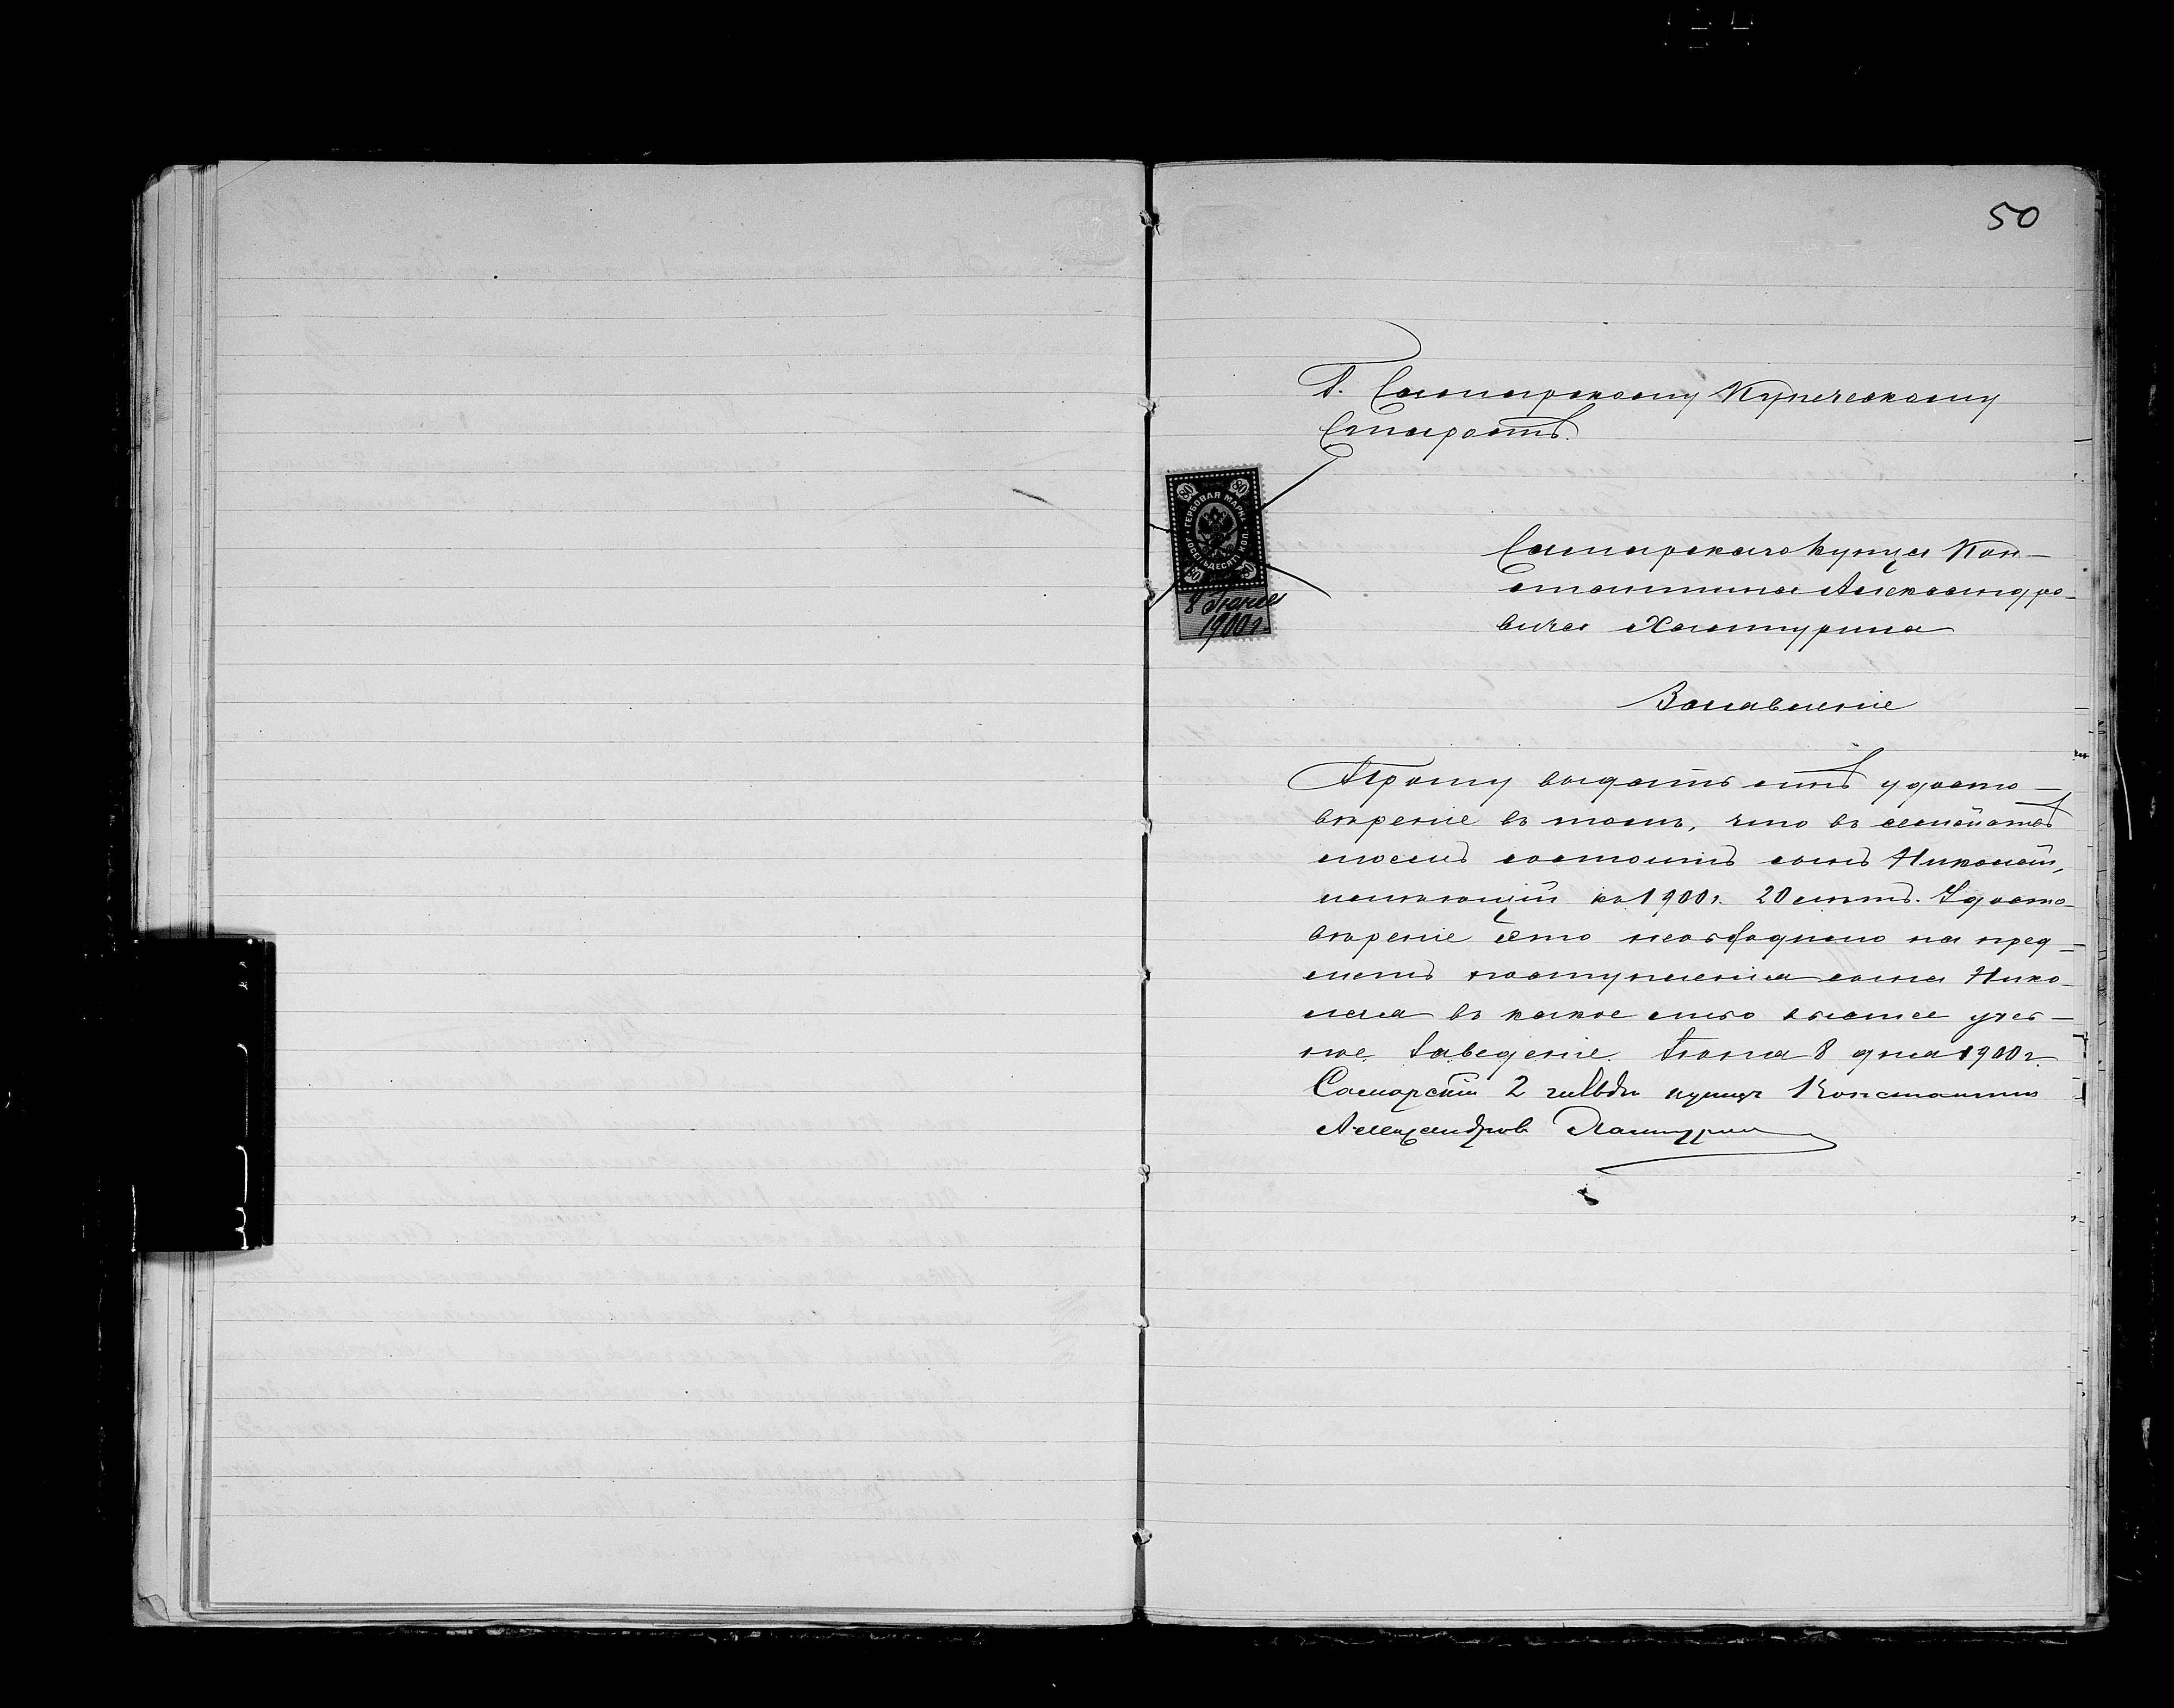 50
Г. Самарскому Купеческому
Старостѣ.
80 80
ГЕРБОВАЯ МАРКА
ВОСЕМЬДЕСЯТ КОП.
80
8 Іюня
1900 г.
Самарскаго купца Кон-
стантина Александро-
вича Хаштурина
Заявленіе
Прошу выдать мнѣ удосто-
вѣреніе въ томъ, что въ семействѣ
моемъ состоитъ сынъ Николай,
имѣющій въ 1900 г. 20 лѣтъ. Удосто-
вѣреніе это необходимо на пред-
метъ поступленія сына Нико-
лая въ какое либо высшее учеб-
ное заведеніе. Іюня 8 дня 1900 г.
Самарскій 2 гильдіи купецъ Константинъ
Александровъ Хаштуринъ